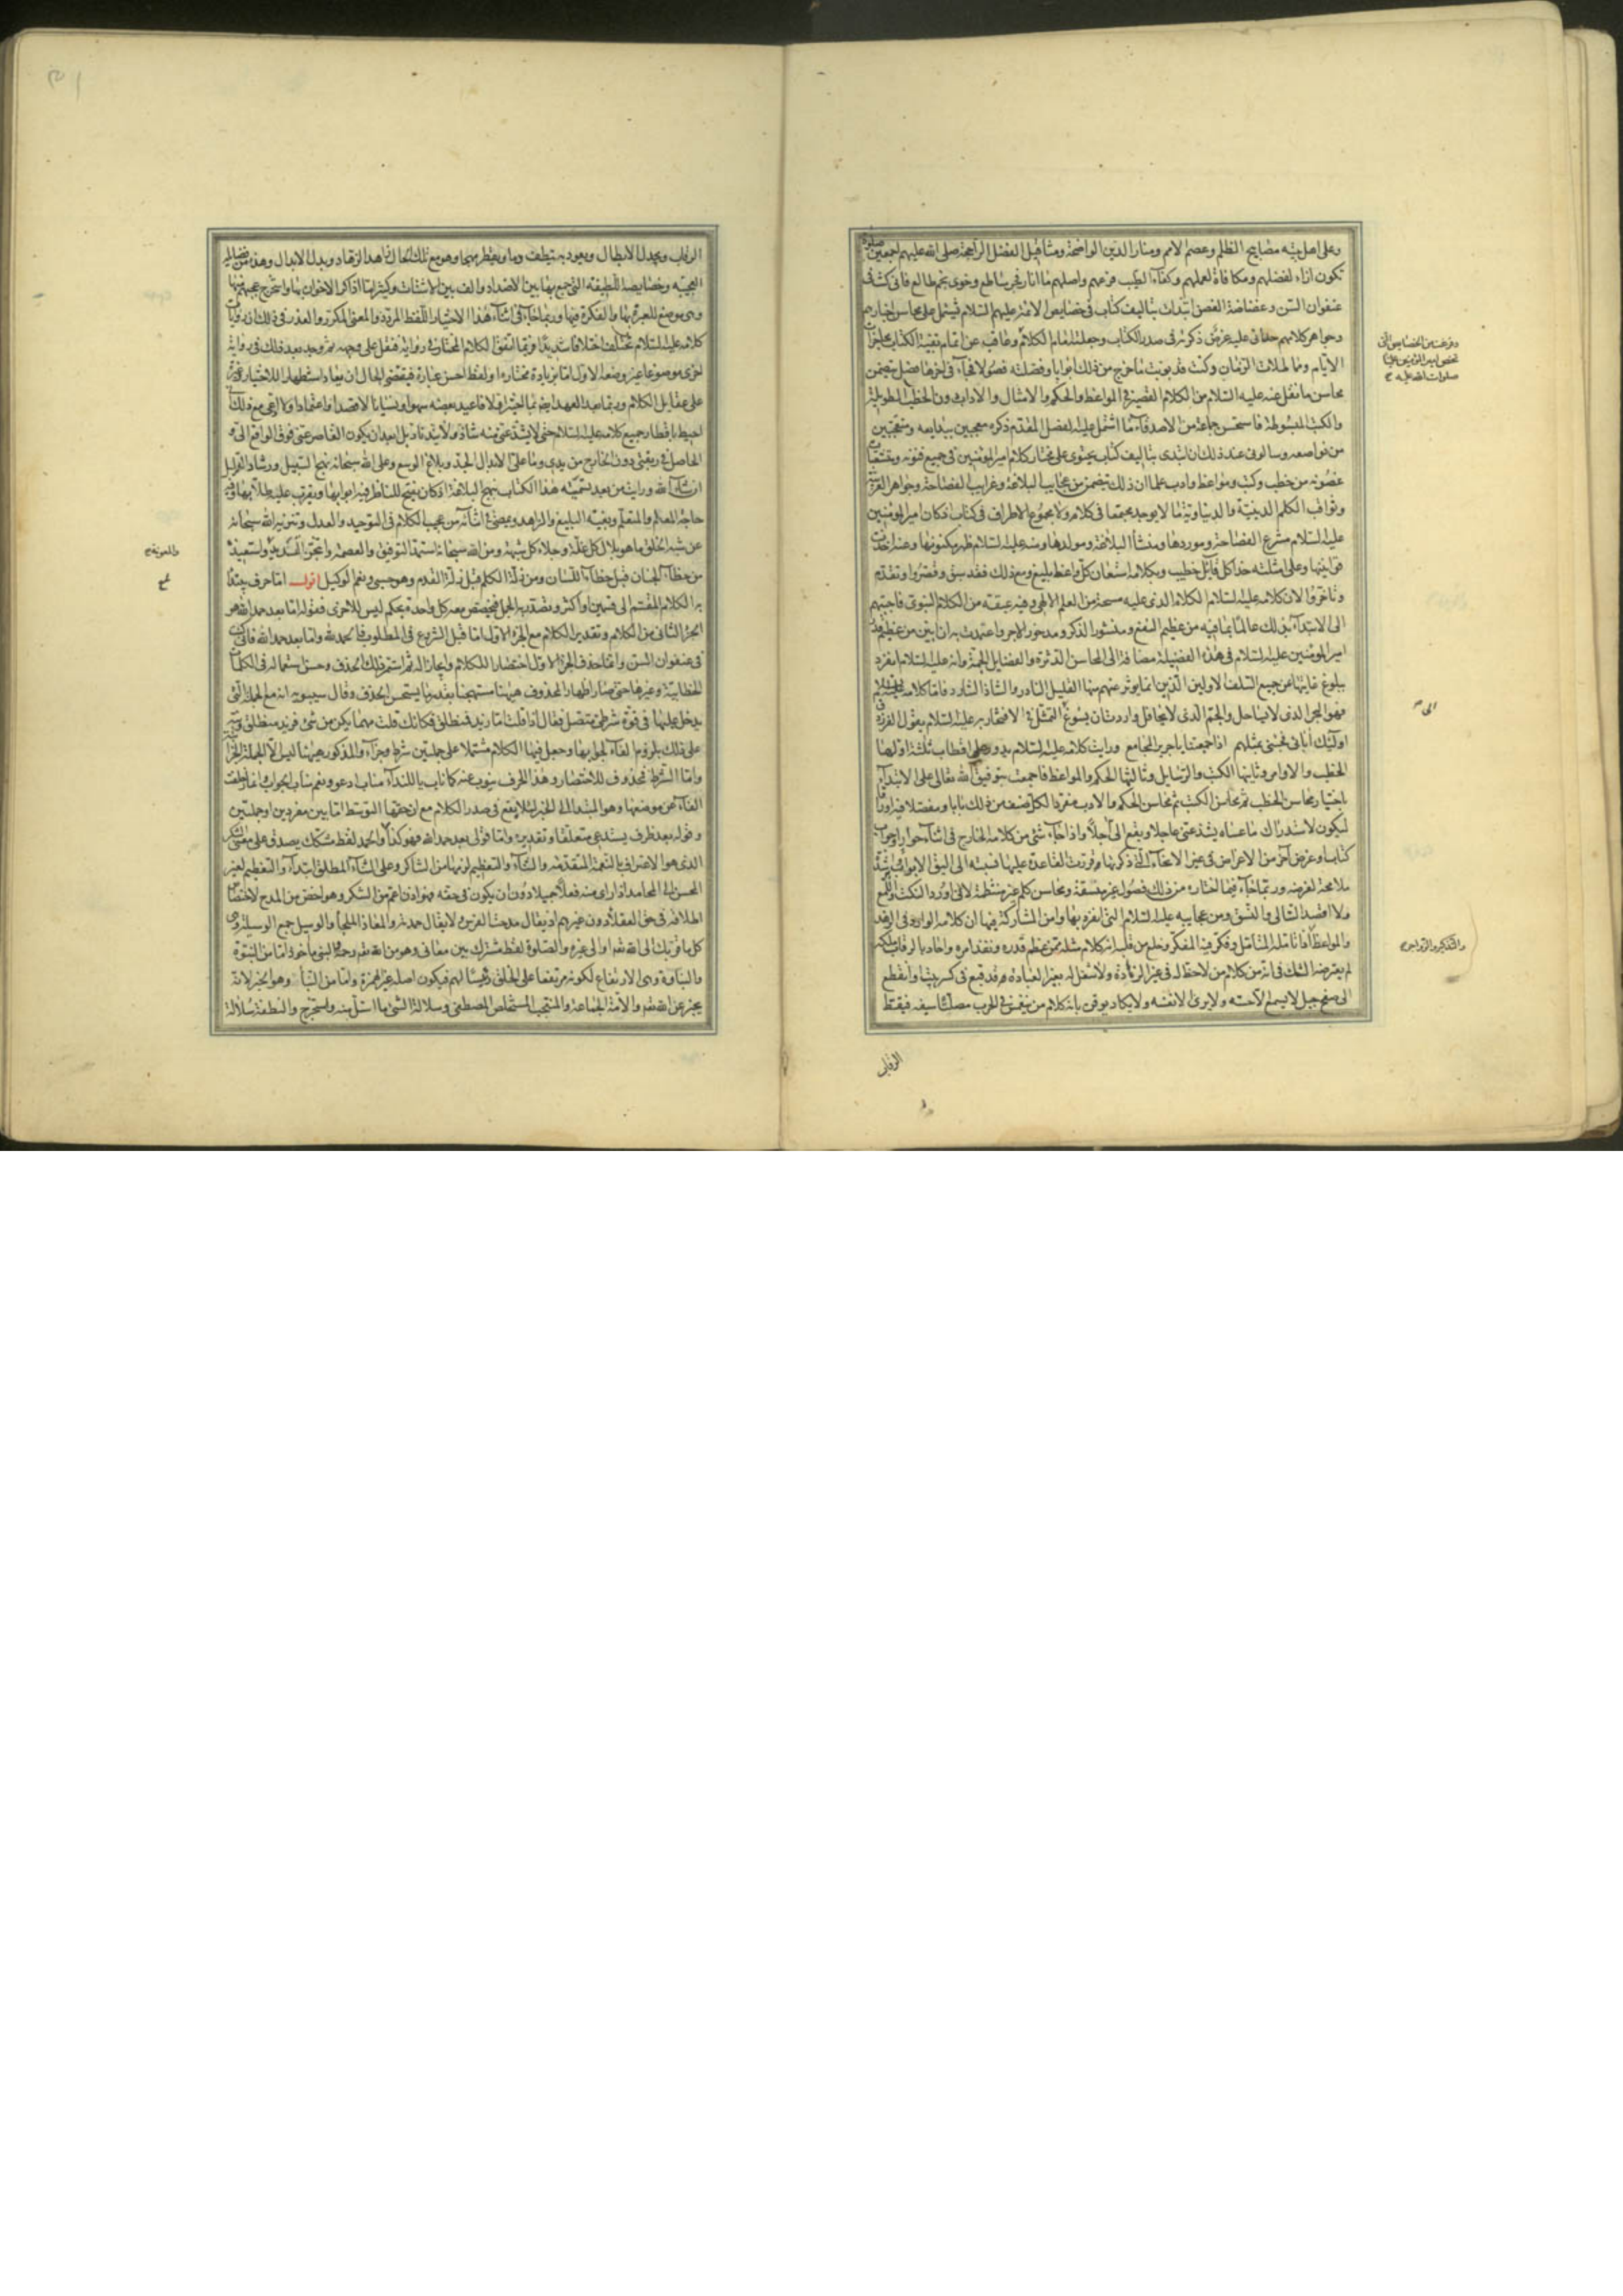 وعلى اهل بيته مصابيح الظلم وعصم الامم ومنار الدين الواضحة ومثاقيل الفضل الراجحة صلى الله عليهم اجمعين صلوة
تكون ازاء لفضلهم ومكافاة لعملهم وكفاء لطيب فرعهم واصلهم ما انار فجر ساطع وخوى نجم طالع فانى كنت فى
عنفوان السن وغضاضة الغصن ابتدأت بتأليف كتاب فى خصايص الائمة عليهم السلام يشتمل على محاسن اخبارهم
وجواهر كلامهم حدانى عليه غرض ذكرته فى صدر الكتاب وجعلته امام الكلام وعاقت عن اتمام بقية الكتاب محاجزات
الايام ومماطلات الزمان وكنت قد بوبت ما خرج من ذلك ابوابا وفصلته فصولا فجاء فى اخرها فصل يتضمن
محاسن ما نقل عنه عليه السلام من الكلام القصير فى المواعظ والحكم والامثال والاداب دون الخطب الطويلة
والكتب المبسوطة فاستحسن جماعة من الاصدقاء ما اشتمل عليه الفصل المقدم ذكره معجبين ببدايعه ومتعجبين
من نواصعه وسالونى عند ذلك ان ابتدى بتاليف كتاب يحتوى على مختار كلام امير المؤمنين فى جميع فنونه ومتشعبات
غصونه من خطب وكتب ومواعظ وادب علما ان ذلك يتضمن من عجايب البلاغة وغرايب الفصاحة وجواهر العربية
وثواقب الكلم الدينية والدنياوية ما لا يوجد مجتمعا فى كلام ولا مجموع الاطراف فى كتاب اذ كان امير المؤمنين
عليه السلام مشرع الفصاحة وموردها ومنشأ البلاغة ومولدها ومنه عليه السلام ظهر مكنونها وعنه اخذت
قوانينها وعلى امثلته حذا كل قائل خطيب وبكلامه استعان كل واعظ بليغ ومع ذلك فقد سبق وقصروا وتقدم
وتاخروا لان كلامه عليه السلام الكلام الذى عليه مسحة من العلم الالهى وفيه عبقة من الكلام النبوى فاجبتهم
الى الابتداء بذلك عالما بما فيه من عظيم النفع ومنشور الذكر ومذخور الاجر واعتمدت به ان ابين من عظيم قدر
امير المؤمنين عليه السلام فى هذه الفضيلة مضافة الى المحاسن الدثرة والفضايل الجمة وانه عليه السلام انفرد
ببلوغ غايتها عن جميع السلف الاولين الذين انما يوثر عنهم منها القليل النادر والشاذ الشارد فاما كلامه عليه السلام
فهو البحر الذى لا يساحل والجم الذى لا يحافل واردت ان يسوغ لى التمثل فى الافتخار به عليه السلام بقول الفرزدق
اولئك ابائى فجئنى بمثلهم اذا جمعتنا يا جرير المجامع ورايت كلامه عليه السلام يدور على اقطاب ثلثة اولها
الخطب والاوامر وثانيها الكتب والرسايل وثالثها الحكم والمواعظ فاجمعت بتوفيق الله تعالى على الابتداء
باختيار محاسن الخطب ثم محاسن الكتب ثم محاسن الحكم والادب مفردا لكل صنف من ذلك بابا ومفصلا فيه اوراقا
ليكون لاستدراك ما عساه يشذ عنى عاجلا ويقع الى آجلا واذا جاء شئ من كلامه الخارج فى اثناء حوار او جواب
كتاب او غرض آخر من الاغراض فى غير الانحاء التى ذكرتها وقررت القاعدة عليها نسبته الى اليق الابواب به واشدها
ملامحة لغرضه وربما جاء فيما اختاره من ذلك فصول غير متسقة ومحاسن كلم غير منتظمة لانى اورد النكت واللمع
ولا اقصد التتالى والنسق ومن عجايبه عليه السلام التى انفرد بها وامن المشاركة فيها ان كلامه الوارد فى الزهد
والمواعظ اذا تامله المتامل وفكر فيه المفكر وخلع من قلبه انه كلام مثله ممن عظم قدره ونفذ امره واحاط بالرقاب ملكه
لم يعترضه الشك فى انه من كلام من لا حظ له فى غير الزهادة ولا شغل له بغير العبادة قد قبع فى كسر بيت او انقطع
الى سفح جبل لا يسمع الا حسه ولا يرى الا نفسه ولا يكاد يوقن بانه كلام من ينغمس فى الحرب مصلتا سيفه فيقط
الرقاب
وفرغت من الخصايص التى
تخص امير المؤمنين عليا
صلوات الله عليه
الى
والتذكير والزواجر
الرقاب ويجدل الابطال ويعود به ينطف دما ويقطر مهجا وهو مع تلك الحال زاهد الزهاد وبدل الابدال وهذه من فضايله
العجيبة وخصايصه اللطيفة التى جمع بها بين الاضداد والف بين الاشتات وكثيرا ما اذاكر الاخوان بها واستخرج عجبهم منها
وهى موضع للعبرة بها والفكرة فيها وربما جاء فى اثناء هذا الاختيار اللفظ المردد والمعنى المكرر والعذر فى ذلك ان روايات
كلامه عليه السلام تختلف اختلافا شديدا فربما اتفق الكلام المختار فى رواية فنقل على وجهه ثم وجد بعد ذلك فى رواية
اخرى موضوعا غير وضعه الاول اما بزيادة مختارة او لفظ احسن عبارة فيقتضى الحال ان يعاد استظهارا للاختيار وغيرة
على عقايل الكلام وربما بعد العهد ايضا بما اختير اولا فاعيد بعضه سهوا ونسيانا لا قصدا واعتمادا ولا ادعى مع ذلك انى
احيط باقطار جميع كلامه عليه السلام حتى لا يشذ عنى منه شاذ ولا يند ناد بل لا ابعد ان يكون القاصر عنى فوق الواقع الى و
الحاصل فى ربقتى دون الخارج من يدى وما على الا بذل الجهد وبلاغ الوسع وعلى الله سبحانه نهج السبيل ورشاد الدليل
ان شاء الله ورايت من بعد تسمية هذا الكتاب بنهج البلاغة اذ كان يفتح للناظر فيه ابوابها ويقرب عليه طلابها وفيه
حاجة العالم والمتعلم وبغية البليغ والزاهد ويمضى فى اثنائه من عجيب الكلام فى التوحيد والعدل وتنزيه الله سبحانه
عن شبه الخلق ما هو بلال كل غلة وجلاء كل شبهة ومن الله سبحانه استمد التوفيق والعصمة واتنجز التسديد واستعيذه
من خطاء الجنان قبل خطاء اللسان ومن زلة الكلم قبل زلة القدم وهو حسبى ونعم الوكيل اقول اما حرف يبتدأ
به الكلام المنقسم الى قسمين او اكثر وتصدر به الجمل فيختص معه كل واحدة بحكم ليس للاخرى فقوله اما بعد حمد الله هو
الجزء الثانى من الكلام وتقدير الكلام مع الجزء الاول اما قبل الشروع فى المطلوب فالحمد لله واما بعد حمد الله فانى كنت
فى عنفوان السن وانما حذف الجزء الاول اختصارا للكلام وايجازا له ثم استمر ذلك الحذف وحسن استعماله فى الكلمات
الخطابية وغيرها حتى صار اظهار المحذوف هيهنا مستهجنا بقدر ما يستحسن الحذف وقال سيبويه انه مع الجملة التى
يدخل عليها فى قوة شرطى متصل فقال اذا قلت اما زيد فمنطلق فكانك قلت مهما يكن من شئ فزيد منطلق ونبه
على ذلك بلزوم الفاء لجوابها وجعل فيها الكلام مشتملا على جملتين شرط وجزاء والمذكور هيهنا ليس الا الجملة الجزائية
واما الشرط فمحذوف للاختصار وهذا الحرف ينوب عنه كما ناب يا للنداء مناب ادعو ونعم مناب الجواب وانما زحلقت
الفاء عن موضعها وهو المبتدا الى الخبر لئلا يقع فى صدر الكلام مع ان حقها التوسط اما بين مفردين او جملتين
وقوله بعد ظرف يستدعى متعلقا وتقديره واما قولى بعد حمد الله فهو كذا والحمد لفظ مشكك يصدق على معنى الشكر
الذى هو الاعتراف بالنعمة المتقدمة والثناء والتعظيم لموليها من الشاكر وعلى الثناء المطلق ابتداء والتعظيم لغير
المحسن الى الحامد اذا راى منه فعلا جميلا دون ان يكون فى حقه وهو اذن اعم من الشكر وهو اخص من المدح لاختصاص
اطلاقه فى حق العقلاء دون غيرهم اذ يقال مدحت الفرس ولا يقال حمدته والمعاذ الملجأ والوسيل جمع الوسيلة وهى
كل ما قربك الى الله تعالى او الى غيره والصلوة لفظ مشترك بين معانى وهو من الله تعالى رحمة والنبى ماخوذ اما من النبوة
والنباوة وهى الارتفاع لكونه مرتفعا على الخلق ورئيسا لهم فيكون اصله غير الهمزة واما من النبأ وهو الخبر لانه
يخبر عن الله تعالى والامة الجماعة والمنتجب المستخلص المصطفى وسلالة الشئ ما استل منه واستخرج والنطفة سلالة
والمعونة